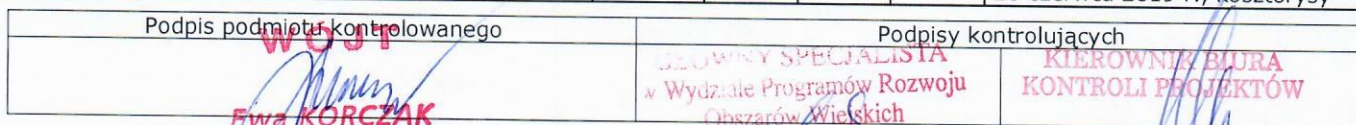 Podpis podmiotu kontrolowanego
WÓJT
Ewa KORCZAK
Podpisy kontrolujących
GŁÓWNY SPECJALISTA
w Wydziale Programów Rozwoju
Obszarów Wiejskich
KIEROWNIK BIURA
KONTROLI PROJEKTÓW